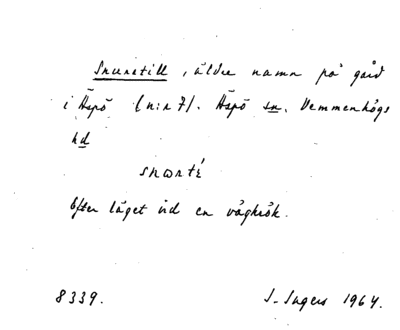 Snurstill, äldre namn på gård
i Äspö (n:r 7). Äspö sn. Vemmenhögs
hd
snɷrté
Efter läget vid en vägkrök.
8339. J. Ingers 1964.